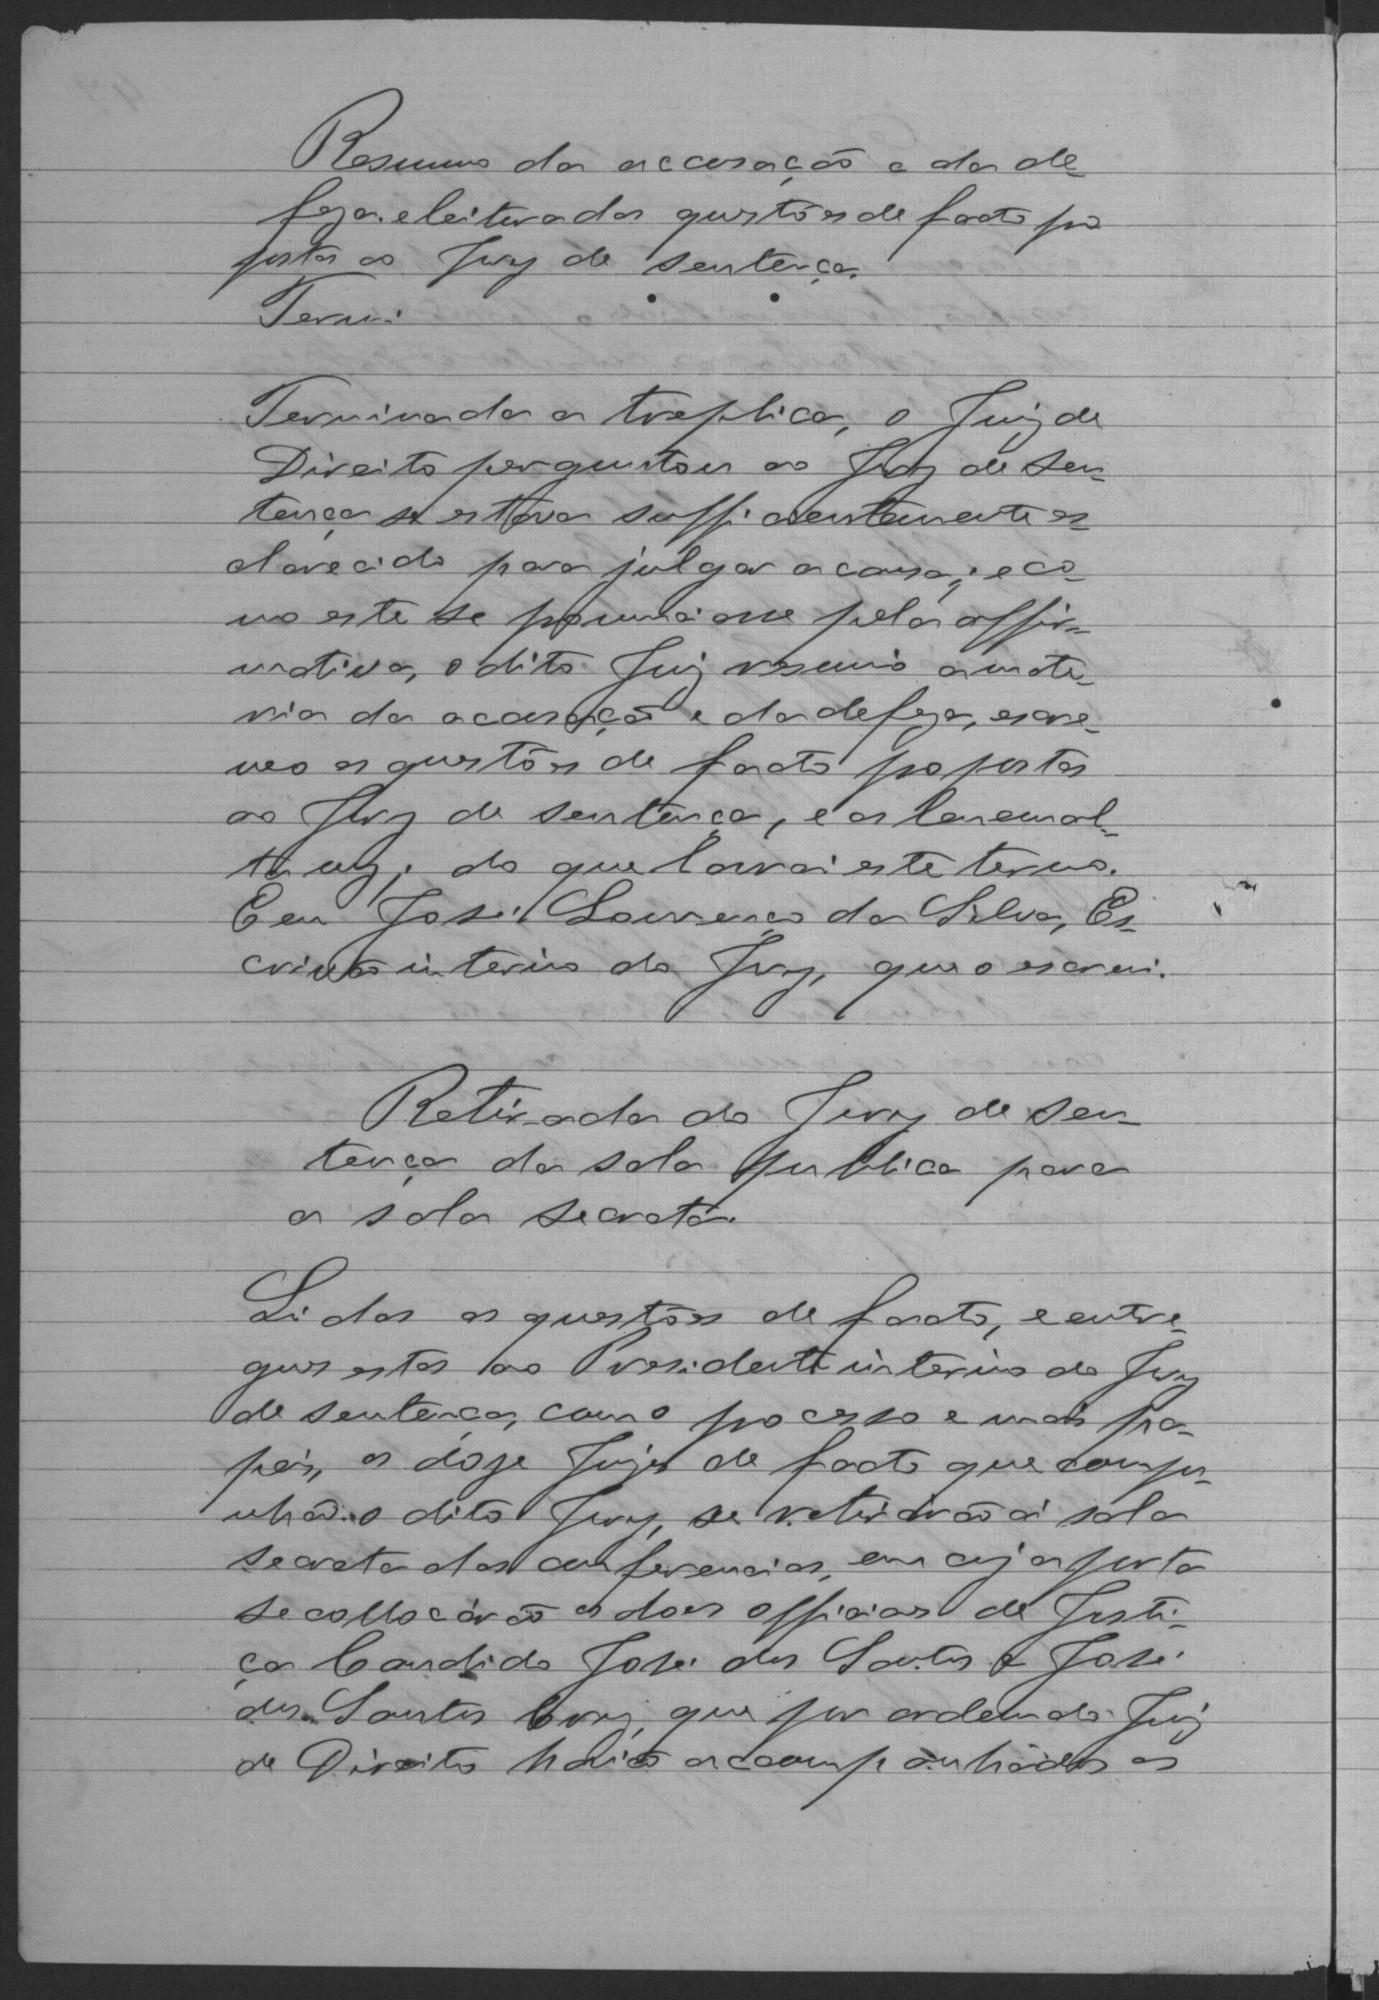 Resumo da accusação e da de-
feza e leitura das questões de facto pro
postas ao Jury de sentença.
Termi
Terminada a treplica, o Juiz de
Direito perguntou ao Jury de sen-
tença se estava sufficientemente es-
clarecido para julgar a causa; e co-
mo este se pronunciasse pela affir-
mativa, o dito Juiz resumio a mate-
ria da accusação e da defeza, escre-
veo as questões de facto propostas
ao Jury de sentença, e as leu em al-
ta voz; do que lavrei este termo.
E eu José Lourenço da Silva, Es-
crivão interino do Jury, que o escrevi.
Retirada do Jury de sen-
tença da sala publica para
a sala secreta.
Lidas as questões de facto, e entre-
gues estas ao Presidente interino do Jury
de sentença, com o processo e mais pa-
peis, os doze Juizes de facto que compu-
nhão o dito Jury, se retirárão á sala
secreta das conferencias, em cuja porta
se collocárão os dois officiaes de Justi-
ça Candido José dos Santos e José
dos Santos Cruz, que por ordem do Juiz
de Direito havião acompanhado os